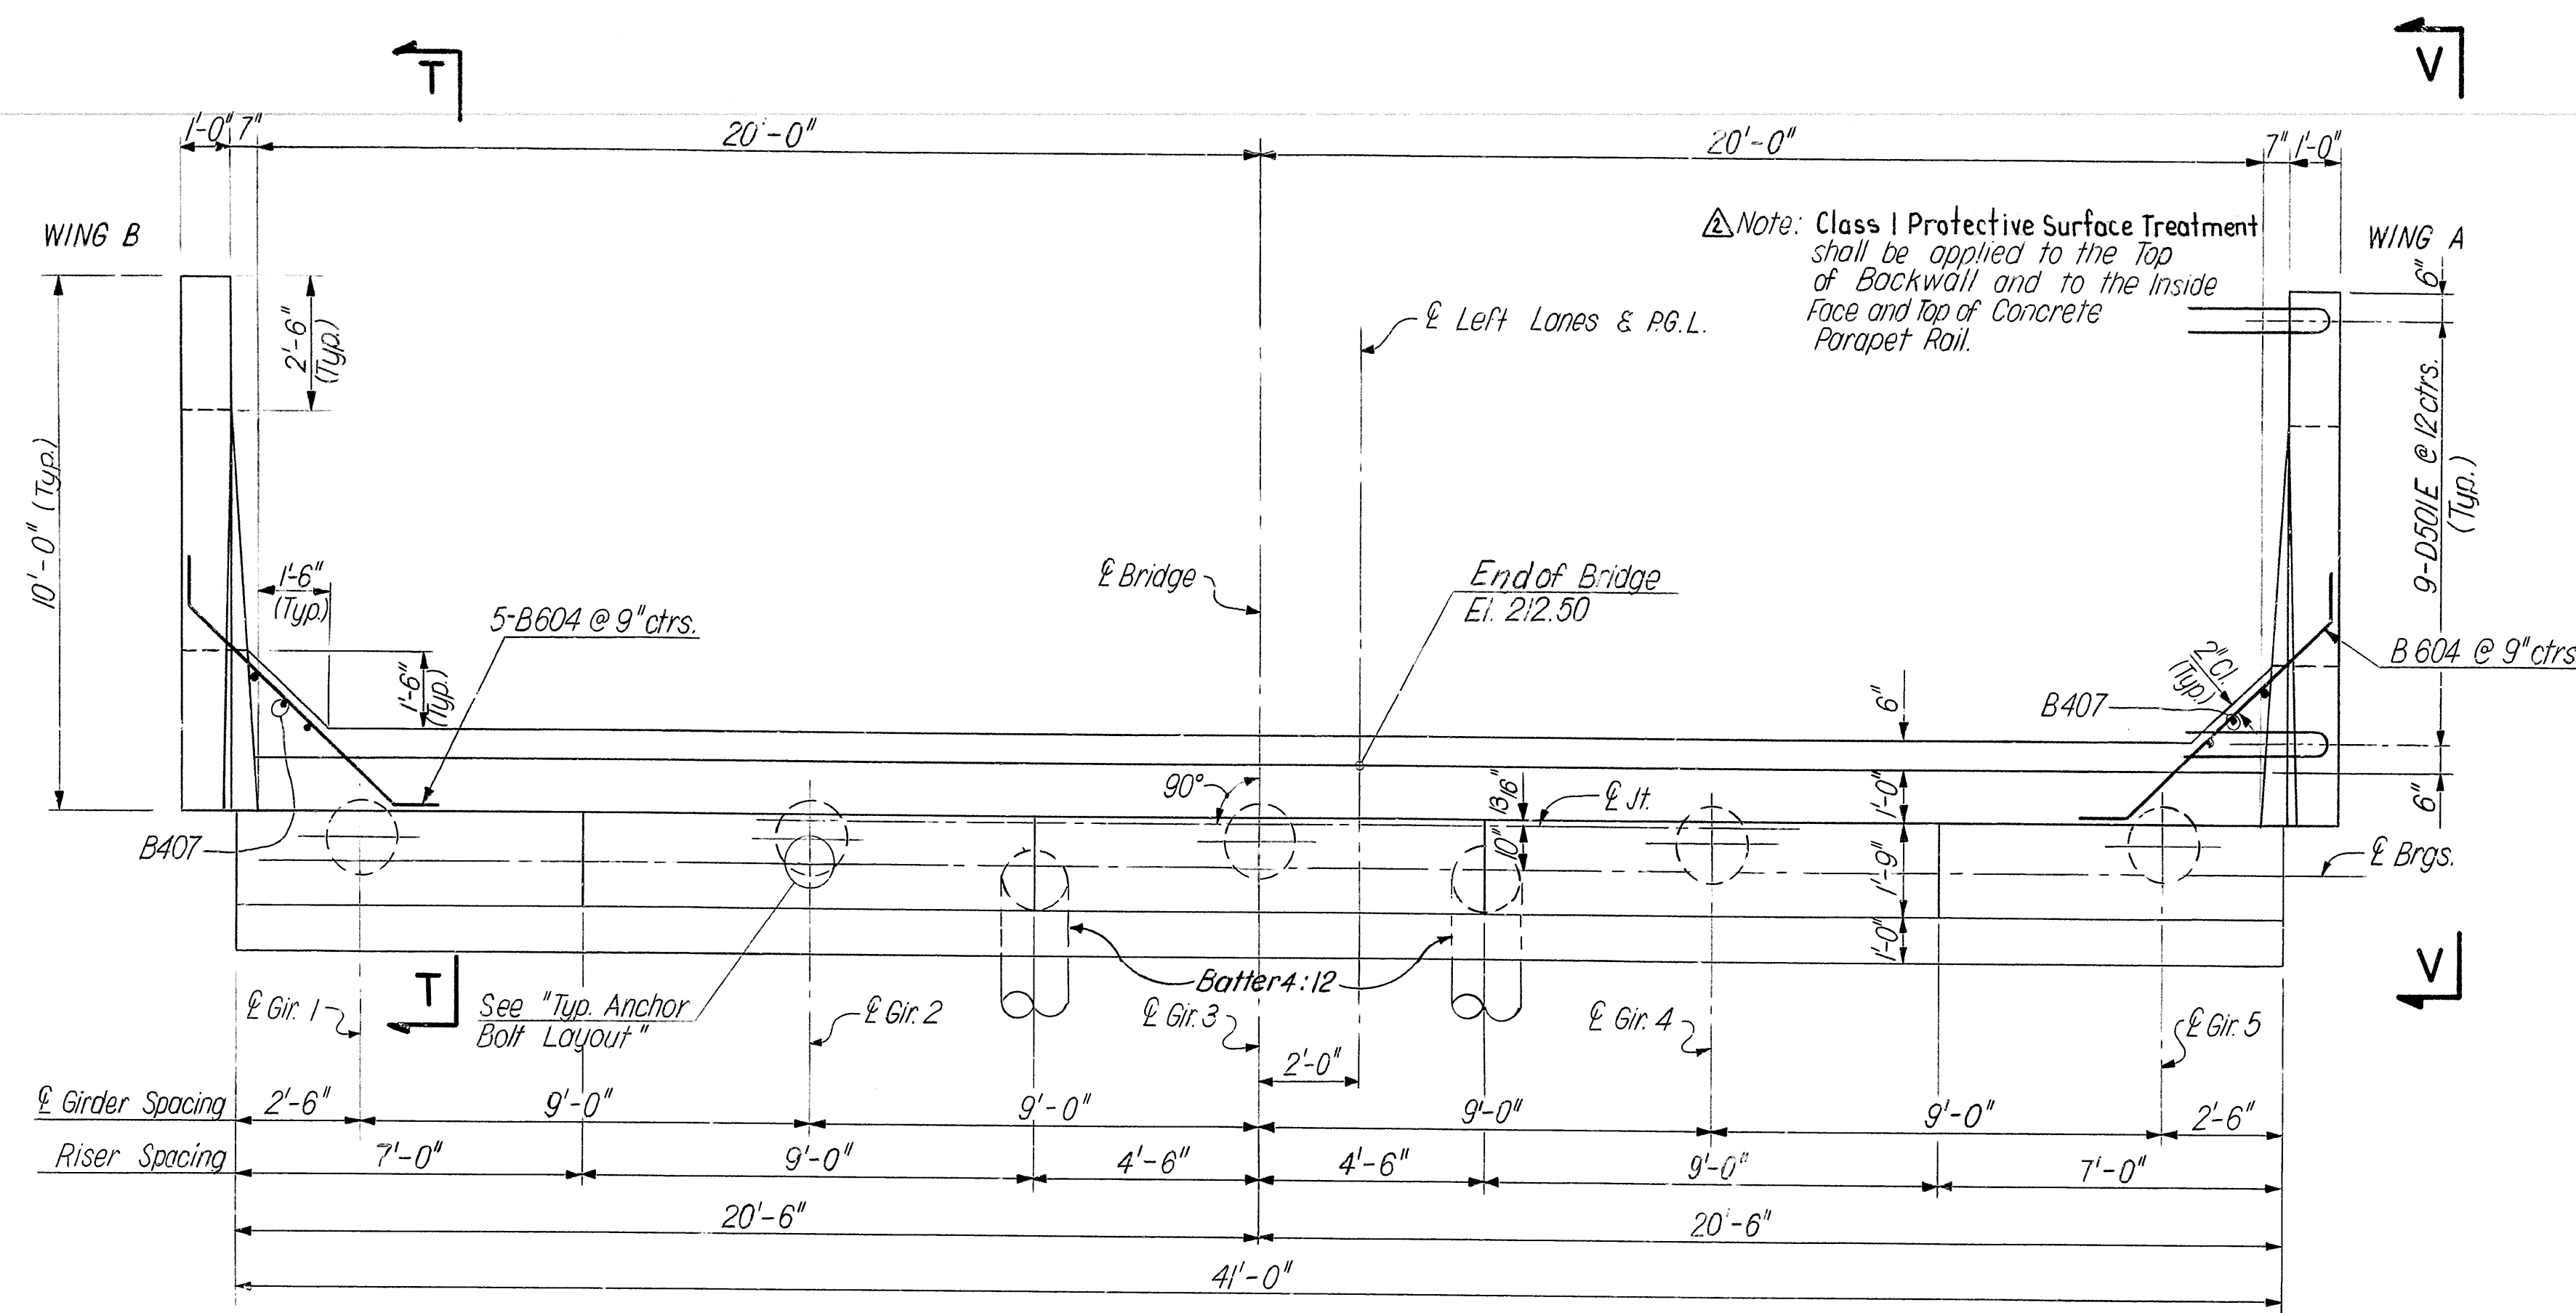 T
V
1'-0"
7"
20'-0"
20'-0"
7"
1'-0"
WING B
2 Note: Class 1 Protective Surface Treatment
shall be applied to the Top
of Backwall and to the Inside
Face and Top of Concrete
Parapet Rail.
WING A
6"
2'-6"
(Typ.)
℄ Left Lanes & P.G.L.
10'-0" (Typ.)
9-D501E @ 12ctrs.
(Typ.)
1'-6"
(Typ.)
5-B604 @ 9" ctrs.
℄ Bridge
End of Bridge
El. 212.50
1'-6"
(Typ.)
2" Cl.
(Typ.)
B 604 @ 9" ctrs
B407
6"
90°
13/16"
℄ Jt.
1'-0"
6"
B407
10"
1'-9"
℄ Brgs.
1'-0"
Batter 4:12
T
V
℄ Gir. 1
See "Typ. Anchor
Bolt Layout"
℄ Gir. 2
℄ Gir. 3
℄ Gir. 4
℄ Gir. 5
2'-0"
℄ Girder Spacing
2'-6"
9'-0"
9'-0"
9'-0"
9'-0"
2'-6"
Riser Spacing
7'-0"
9'-0"
4'-6"
4'-6"
9'-0"
7'-0"
20'-6"
20'-6"
41'-0"